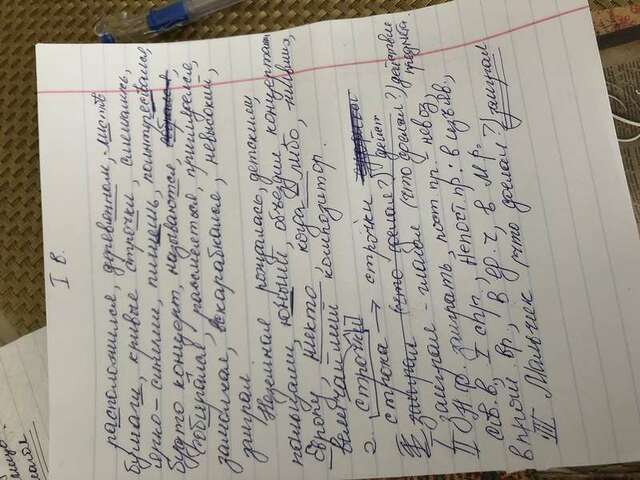 глагол
I в.
расположился, деревянном, листов
бумаги, кривые строчки, смешались,
ярко-синими, пишешь, поинтересовался,
будто концерт, называются,
собирался, рассмеяться, пригляделся,
замолчал, вскарабкался, невысокий,
заиграл
Неземная рождалась, детскими
пальцами, юный, объездил концертами
Европу, никто, когда-либо, живших,
величайший композитор.
2. строчки
строка → строчки
I заиграл (что сделал?) дейст
I заиграл - глагол (что сделал?) действие предмета.
II Н.ф. заиграть, пост пр. - невоз,
сов.в, I спр., Непост.пр: в изъяв,
в прош вр, в ед.ч, в м.р.
III Мальчик (что сделал?) заиграл